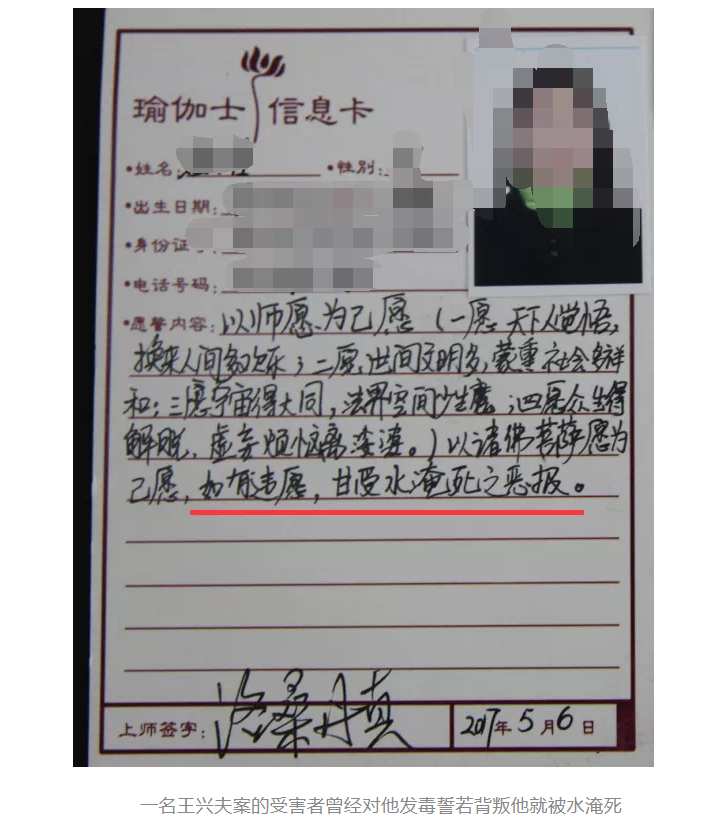 瑜伽士 信息卡
•姓名: •性别:
•出生日期:
•身份证号
•电话号码:
•愿誓内容: 以师愿为己愿(一愿天下人觉悟,
换来人间多欢乐;二愿世间文明多,蒙熏社会多祥
和;三愿宇宙得大同,法界空间少生魔;四愿众生得
解脱,虚妄烦恼离娑婆。)以诸佛菩萨愿为
己愿,如有违愿,甘受水淹死之恶报。
上师签字: 洛桑丹真 2017年5月6日
一名王兴夫案的受害者曾经对他发毒誓若背叛他就被水淹死